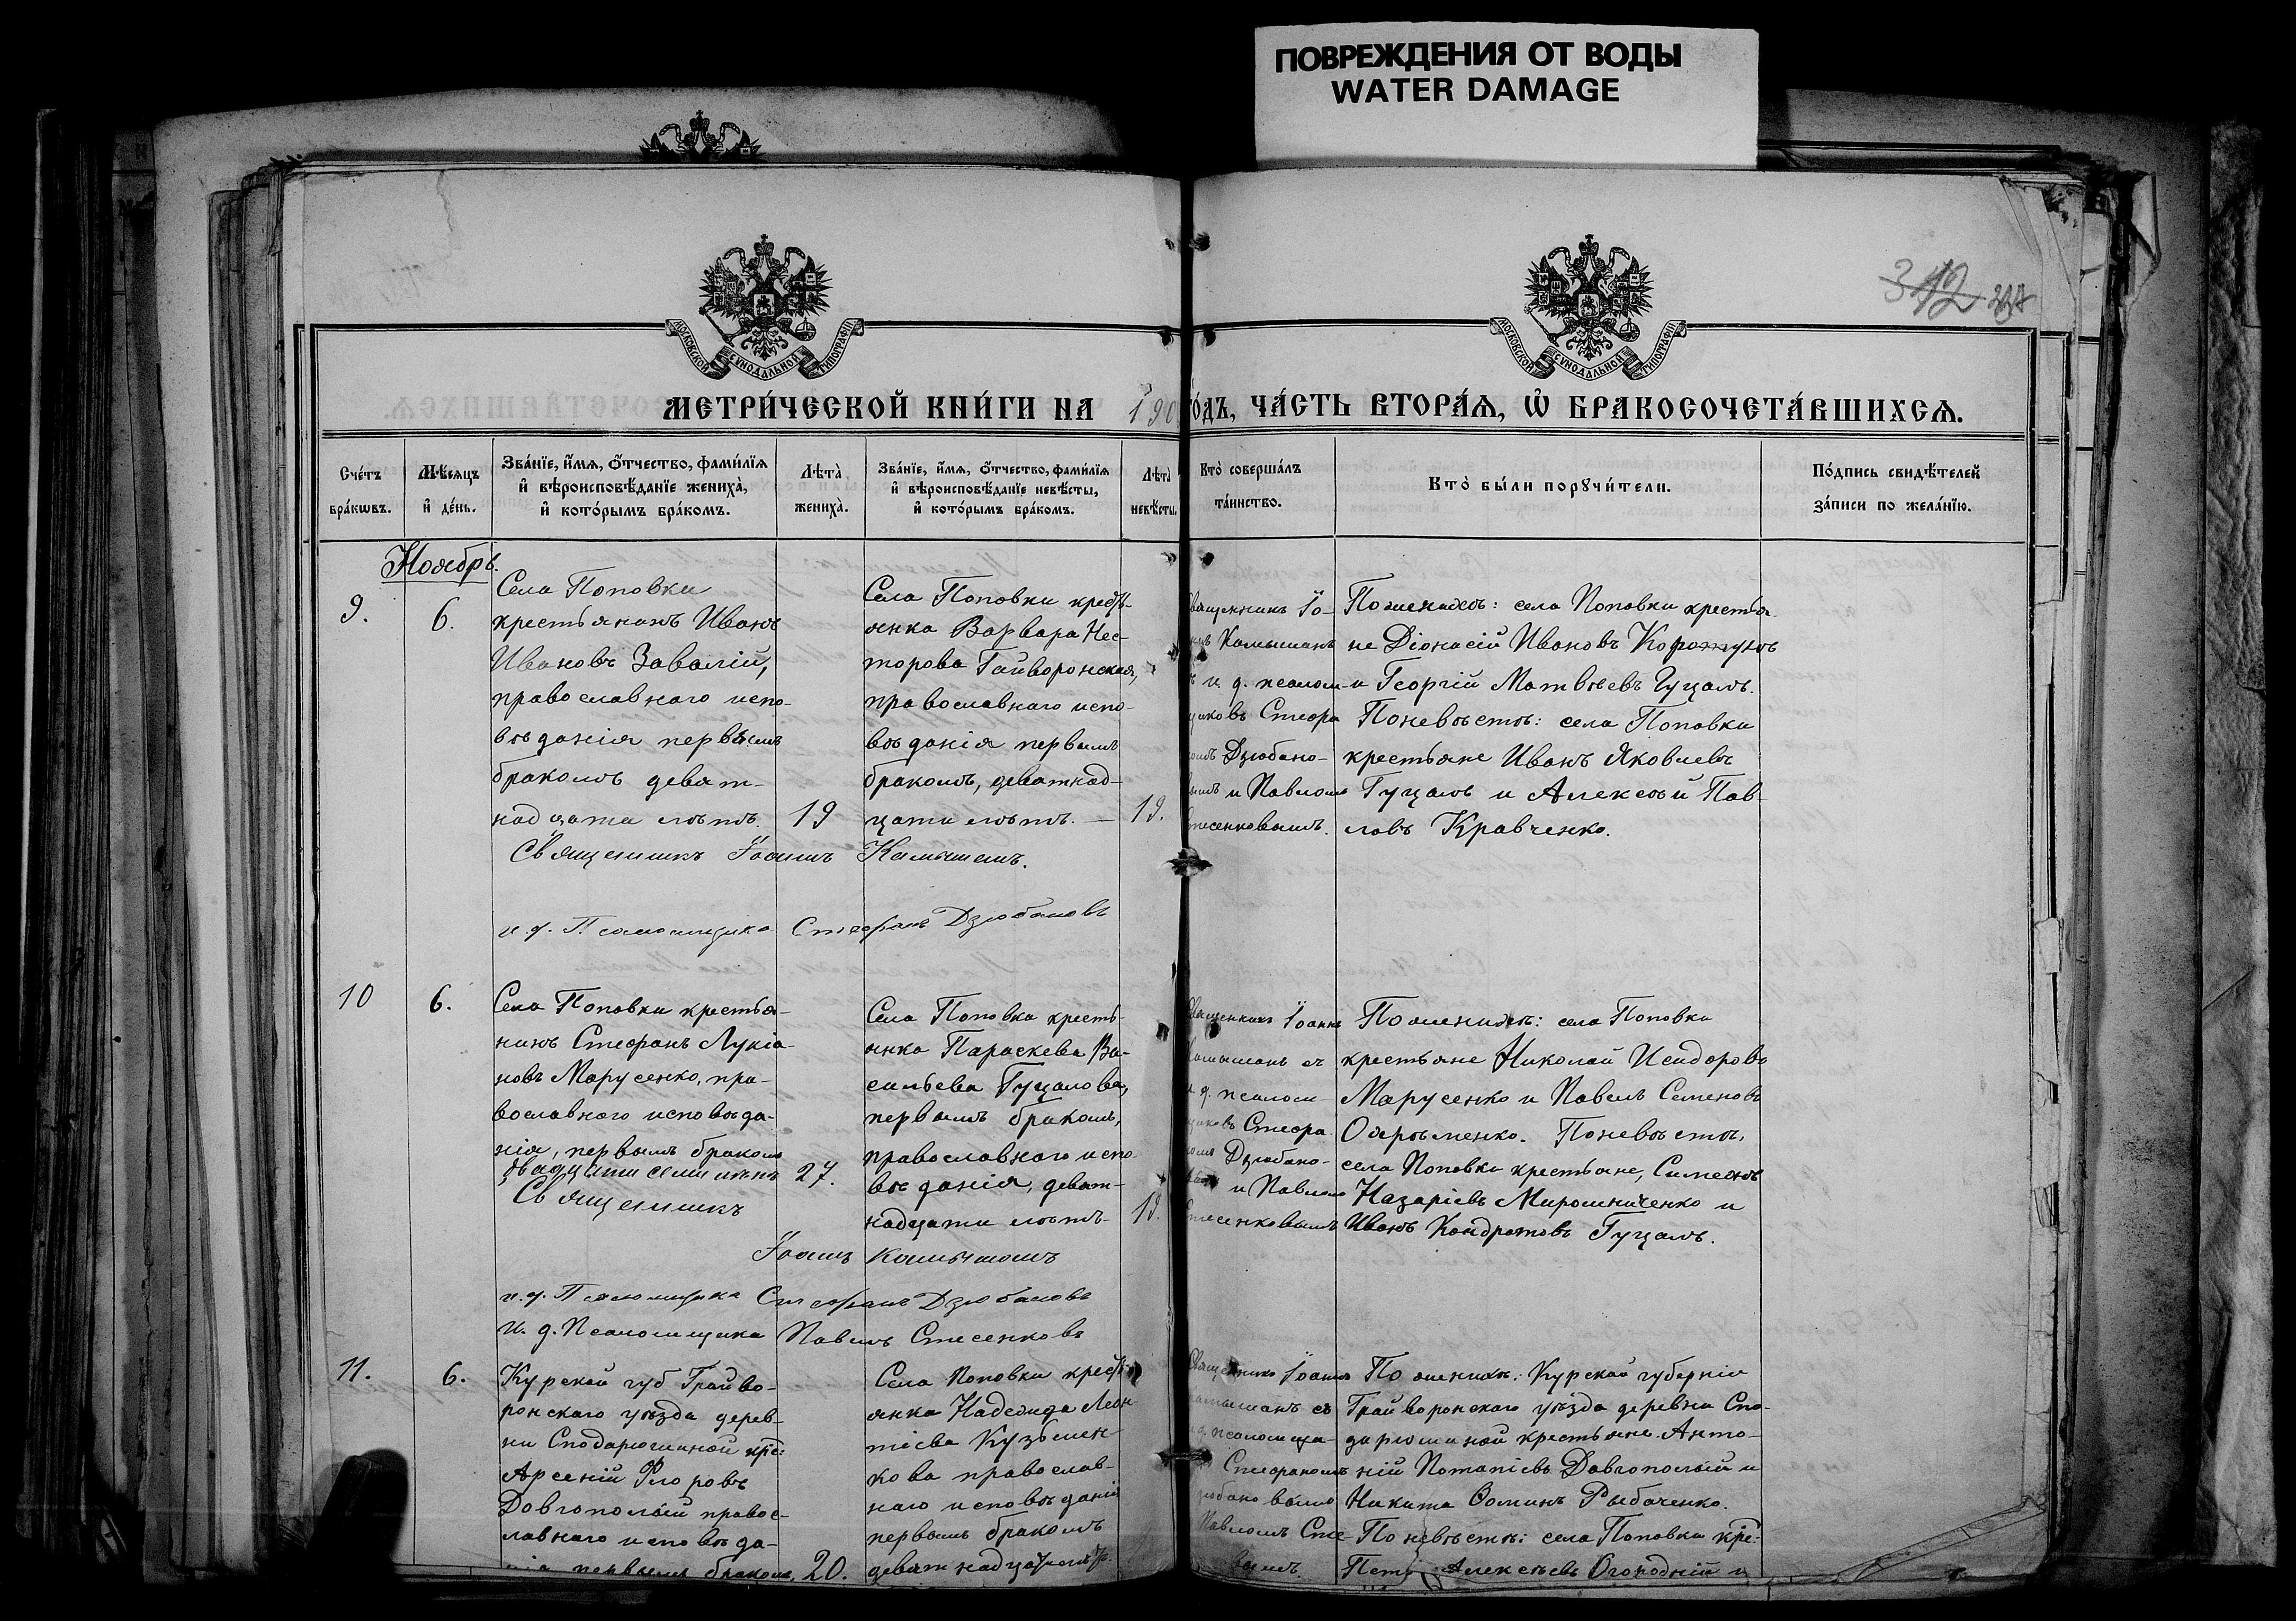 ПОВРЕЖДЕНИЯ ОТ ВОДЫ
WATER DAMAGE
312
МОСКОВСКОЙ СѴНОДАЛЬНОЙ ТИПОГРАФІИ
МОСКОВСКОЙ СѴНОДАЛЬНОЙ ТИПОГРАФІИ
МЕТРИ́ЧЕСКОЙ КНИ́ГИ НА 190
О́ДЪ, ЧА́СТЬ ВТОРА́Ѧ, Ѽ БРАКОСОЧЕТА́ВШИХСѦ.
Сче́тъ
бра́кѡвъ.
Мѣ́сѧцъ
и҆ де́нь.
Зва́нїе, и҆́мѧ, ѻ҆́тчество, фами́лїѧ
и҆ вѣроисповѣ́данїе жениха̀,
и҆ кото́рымъ бра́комъ.
Лѣта̀
жениха̀.
Зва́нїе, и҆́мѧ, ѻ҆́тчество, фами́лїѧ
и҆ вѣроисповѣ́данїе невѣ́сты,
и҆ кото́рымъ бра́комъ.
Лѣта̀
невѣ́сты.
Кто̀ соверша́лъ
та́инство.
Кто̀ бы́ли порꙋчи́тели.
По́дпись свидѣ́телей
за́писи по жела́нїю.
Ноябрь.
9.
6.
Села Поповки
крестьянинъ Иванъ
Ивановъ Завалій,
православнаго испо-
вѣданія первымъ
бракомъ девят-
надцати лѣтъ.
19
Села Поповки кресть-
янка Варвара Нес-
торова Гайворонская,
православнаго испо-
вѣданія первымъ
бракомъ, девятнад-
цати лѣтъ. —
19.
Священникъ Іо-
Камышанъ
и. д. псалом-
щиковъ Стефа
Дзюбано-
и Павломъ
Стесенковымъ.
По женихѣ: села Поповки крестья
не Діонисій Ивановъ Коротунъ
и Георгій Матвѣевъ Гуцалъ.
По невѣстѣ: села Поповки
крестьяне Иванъ Яковлевъ
Гуцалъ и Алексѣй Пав-
ловъ Кравченко.
Священникъ Іоаннъ Камышанъ.
и. д. Псаломщика Стефанъ Дзюбановъ
10
6.
Села Поповки крестья-
нинъ Стефанъ Лукіа-
новъ Марусенко, пра-
вославнаго исповѣда-
нія, первымъ бракомъ
двадцати семи лѣтъ
27.
Села Поповки кресть-
янка Параскева Ва-
сильева Гуцалова,
первымъ бракомъ,
православнаго испо-
вѣданія, девят-
надцати лѣтъ
19.
Священникъ Іоаннъ
Камышанъ съ
и д. псалом-
щиковъ Стефа
Дзюбано-
и Павломъ
Стесенковымъ
По женихѣ: села Поповки
крестьяне Николай Исидоровъ
Марусенко и Павелъ Семеновъ
Охрѣменко. По невѣстѣ,
села Поповки крестьяне, Симеонъ
Назаріевъ Мирошниченко и
Иванъ Кондратовъ Гуцалъ.
Священникъ
Іоаннъ Камышанъ
и. д. Псаломщика Стефанъ Дзюбановъ
И. д. Псаломщика Павелъ Стесенковъ
11.
6.
Курской губ Грайво-
ронскаго уѣзда дерев-
ни Сподарюшиной кре:
Арсеній Флоровъ
Довгополый правос-
лавнаго исповѣда-
нія первымъ бракомъ,
20.
Села Поповки кресть-
янка Надежда Леон
тіева Кузьмен-
кова православ-
наго исповѣданія
первымъ бракомъ
девятнадцати
Священникъ Іоаннъ
Камышанъ съ
псаломща-
Стефаномъ
Дзюбановымъ
Павломъ Сте-
вымъ.
По женихѣ: Курской губерніи
Грайворонскаго уѣзда деревни Спо-
дарюшиной крестьяне Анто-
ній Потапіевъ Довгополый и
Никита Ѳоминъ Рыбаченко.
По невѣстѣ: села Поповки кре:
Петръ Алексѣевъ Огородній и